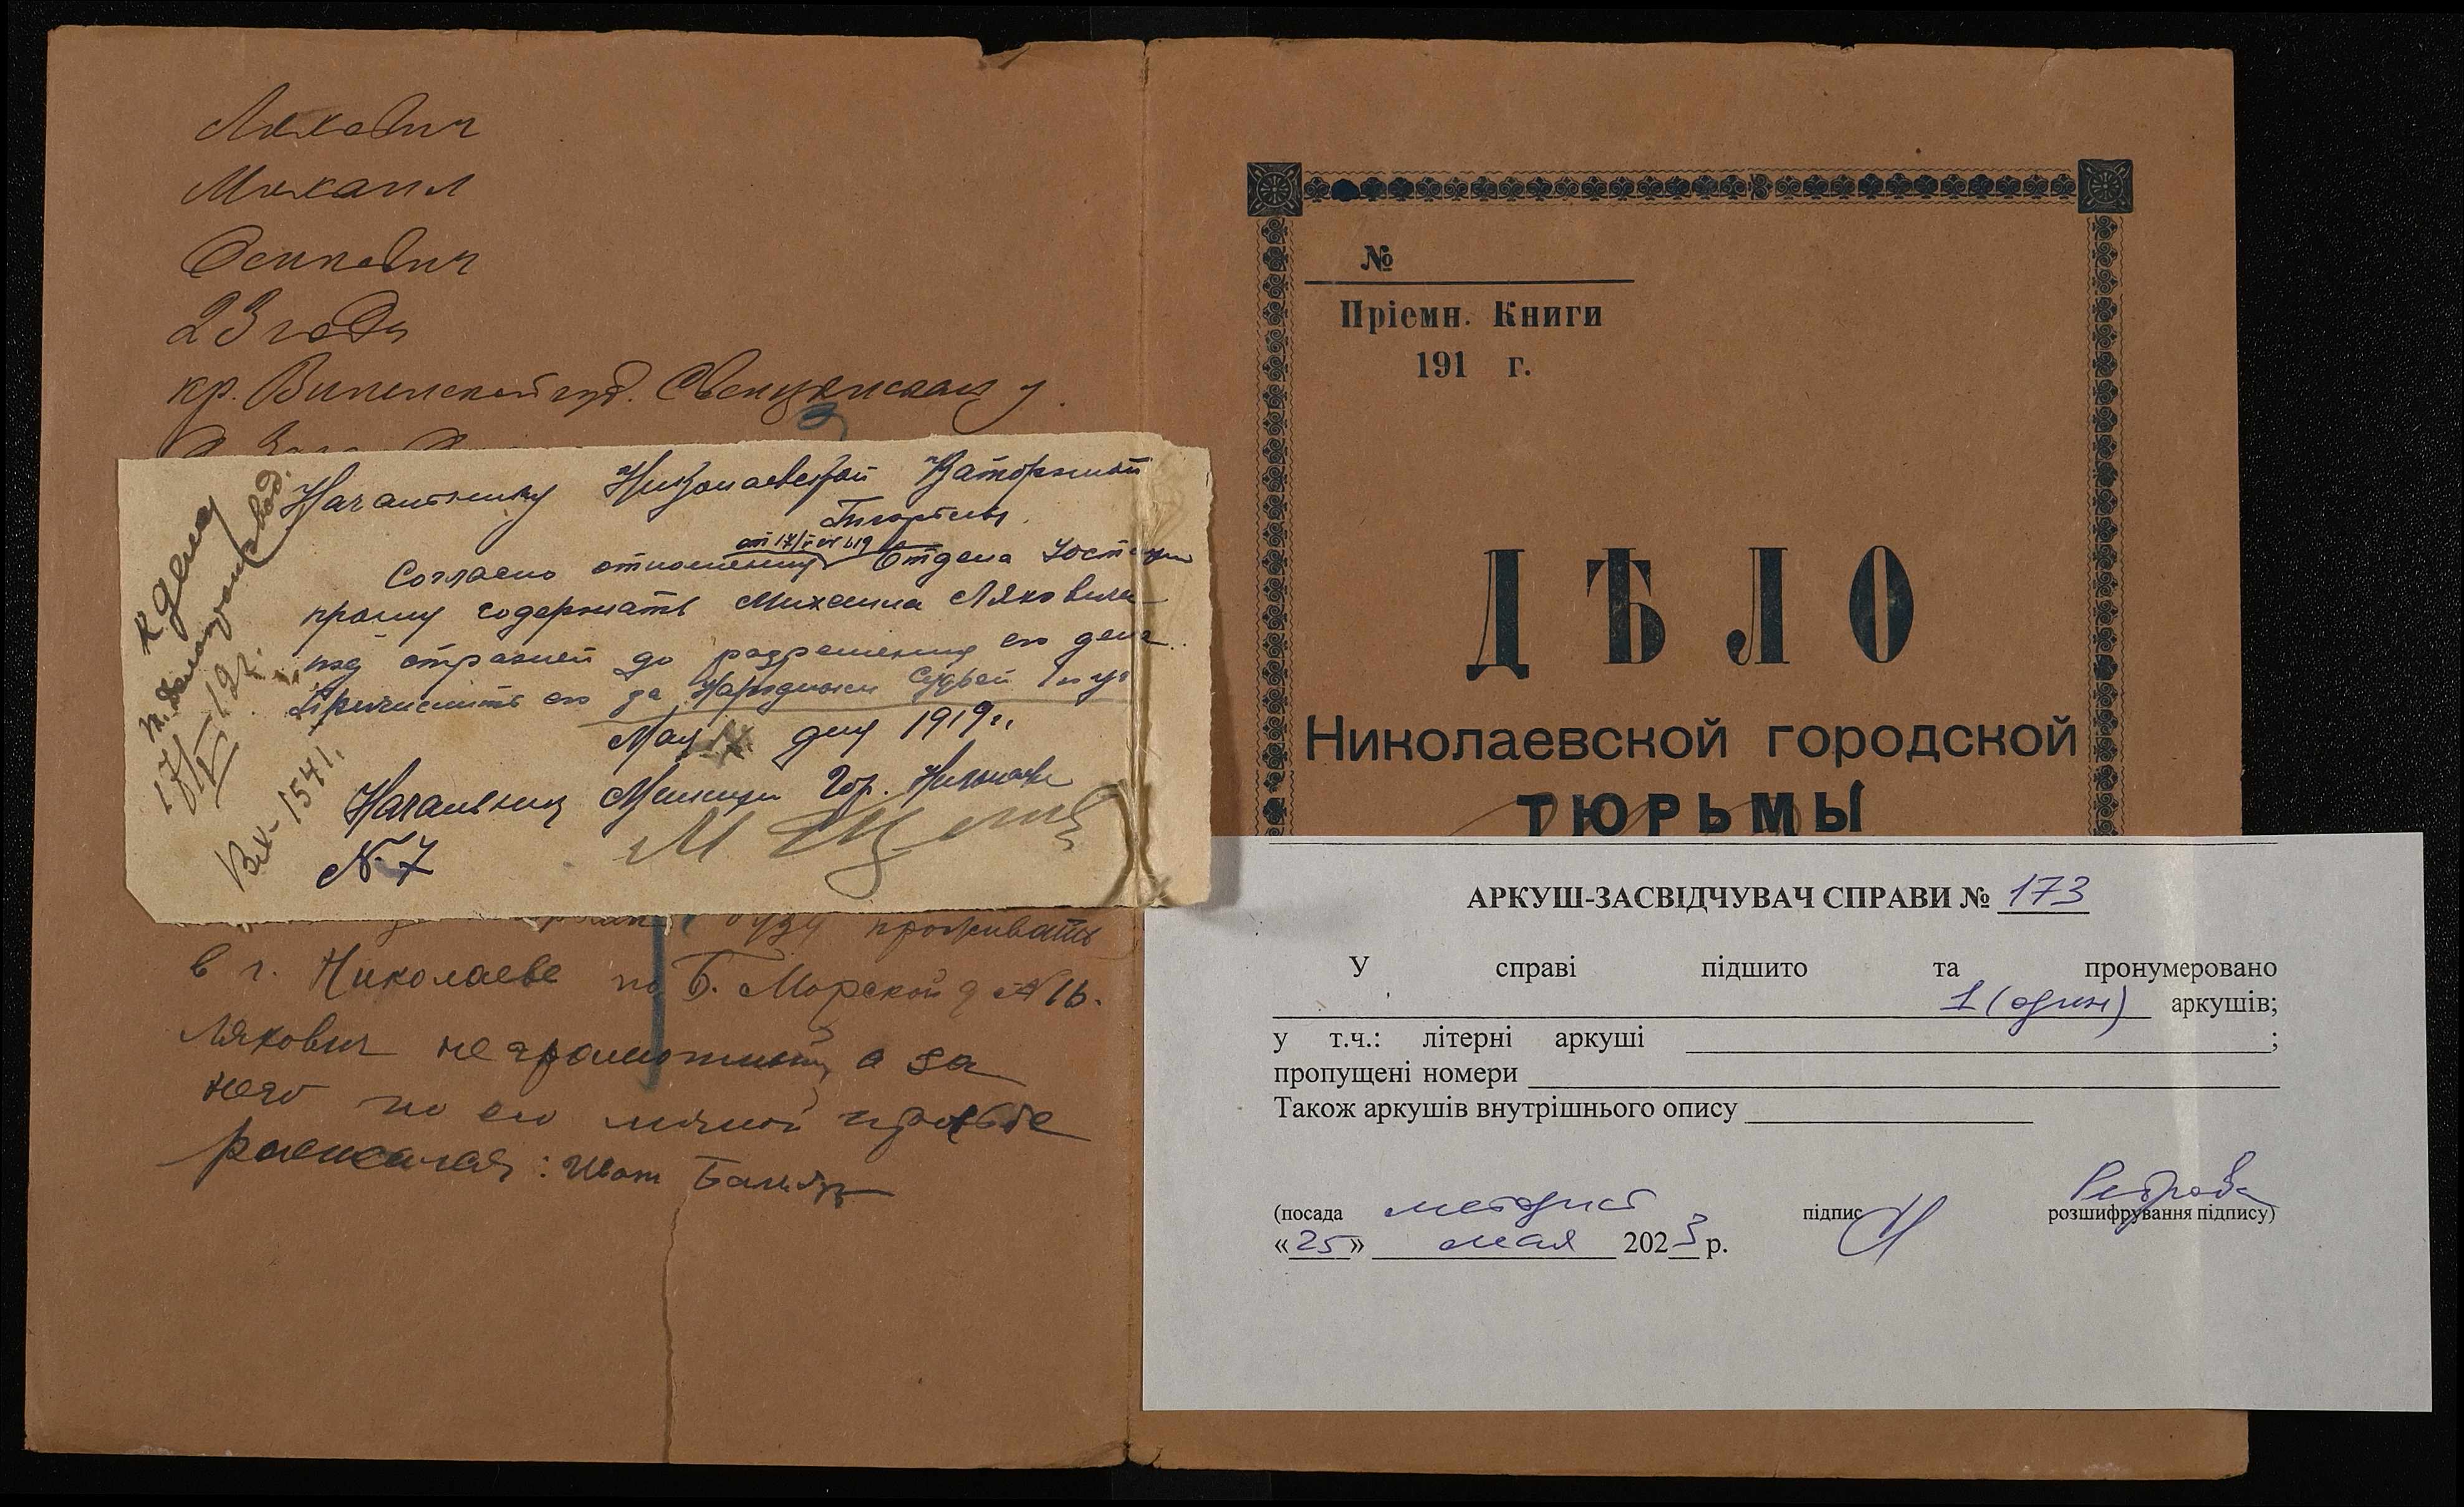 Ляхович
Михаил
Осипович
23 года
кр. Виленской губ. Свенцянскаго у.
К делу
17/V–19 г.
Вх– 1541.
Начальнику Николаевской Каторжной
Тюрьмы
от 17/V
Согласно отношению Отдела Юстиции
прошу содержать Михаила Ляховича
под стражей до разрешения его дела.
Причислить его за Народным Судьей 1 уч
Мая 17 дня 1919 г.
Начальник Милиции Гор. Николаева
№ 7
буду проживать
в г. Николаеве по Б. Морской д № 16.
Ляхович неграмотный, а за
него по его личной просьбе
расписался: Иван
№
Пріемн. Книги
191 г.
ДѢЛО
Николаевской городской
ТЮРЬМЫ
АРКУШ-ЗАСВІДЧУВАЧ СПРАВИ № 173
У справі підшито та пронумеровано
1 (один) аркушів;
у т.ч.: літерні аркуші ;
пропущені номери
Також аркушів внутрішнього опису
(посада методист підпис розшифрування підпису)
«25» мая 2023 р.